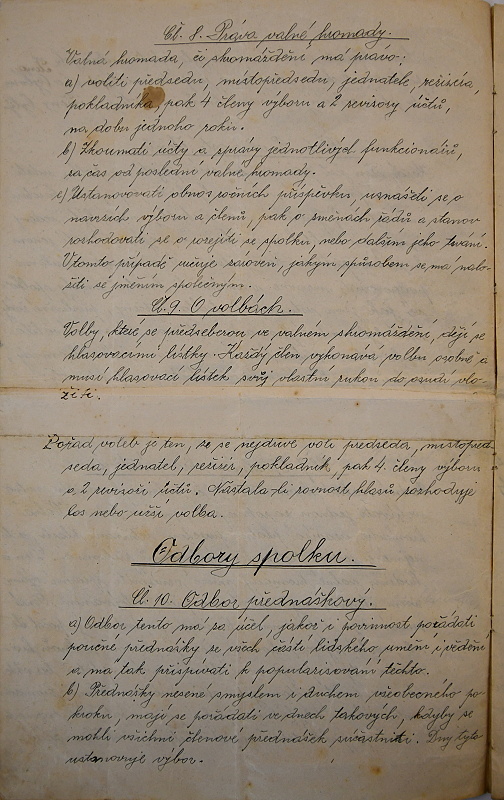 Čl. 8. Práva valné hromady.
Valná hromada, či shromáždění, má právo:
a) voliti předsedu, místopředsedu, jednatele, režiséra,
pokladníka, pak 4 členy výboru a 2 revisory účtů,
na dobu jednoho roku.
b) Zkoumati účty a správy jednotlivých funkcionářů,
za čas od poslední valné hromady.
c) Ustanovovati obnos ročních příspěvků, usnášeti se o
návrzích výboru a členů, pak o změnách řádů a stanov
rozhodovati se o rozejití se spolku, nebo dalším jeho trvání.
V tomto případě určuje zároveň, jakým způsobem se má nalo-
žiti se jměním společným.
Čl. 9. O volbách.
Volby, které se předseberou ve valném shromáždění, dějí se
hlasovacími lístky. Každý člen vykonává volbu osobně a
musí hlasovací lístek svůj vlastní rukou do osudí vlo-
žiti.
Pořad voleb je ten, že se nejdříve volí předseda, místopřed-
seda, jednatel, režisér, pokladník, pak 4. členy výboru
a 2 revisoři účtů. Nastala-li rovnost hlasů rozhoduje
los nebo užší volba.
Odbory spolku.
Čl. 10. Odbor přednáškový.
a) Odbor tento má za účel, jakož i povinnost pořádati
poučné přednášky ze všech částí lidského umění i vědění
a má tak přispívati k popularisování těchto.
b) Přednášky nesené smyslem i duchem všeobecného po-
kroku, mají se pořádati ve dnech takových, kdyby se
mohli všichni členové přednášek súčastniti. Dny tyto
ustanovuje výbor.